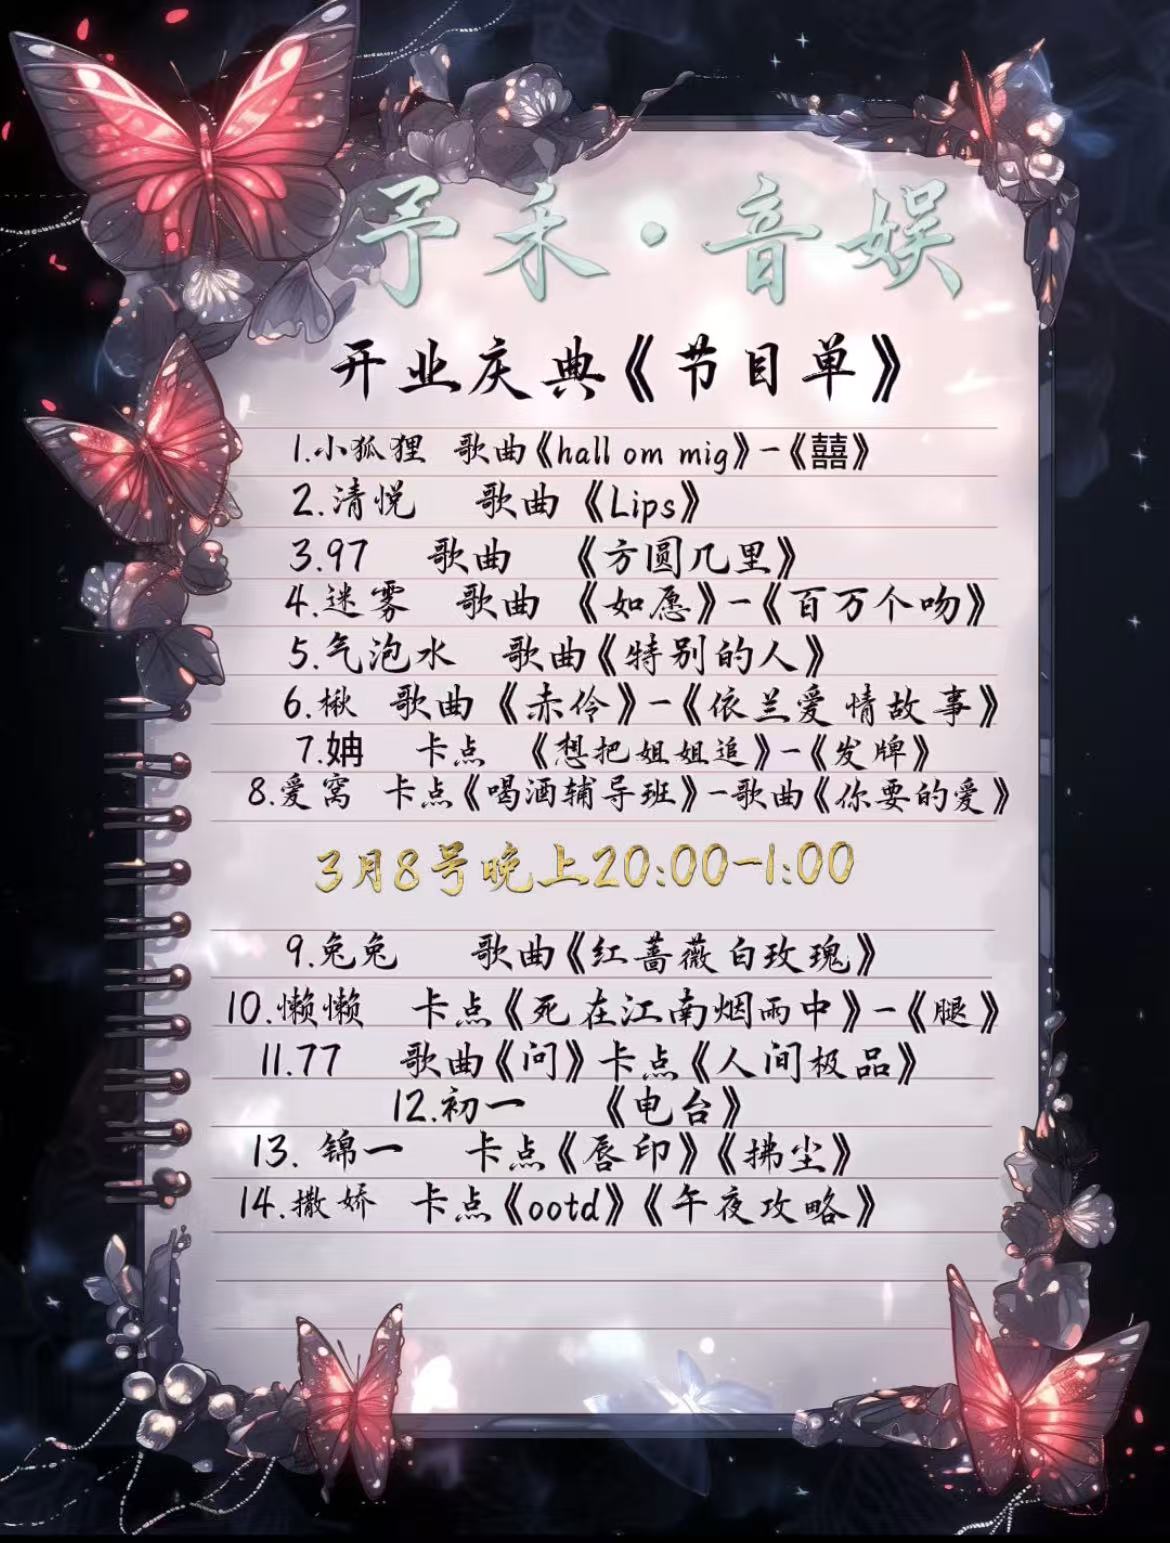 予禾·音娱
开业庆典《节目单》
1.小狐狸 歌曲《hall om mig》-《囍》
2.清悦 歌曲《Lips》
3.97 歌曲 《方圆几里》
4.迷雾 歌曲 《如愿》-《百万个吻》
5.气泡水 歌曲《特别的人》
6.楸 歌曲《赤伶》-《依兰爱情故事》
7.姌 卡点 《想把姐姐追》-《发牌》
8.爱窝 卡点《喝酒辅导班》-歌曲《你要的爱》
3月8号晚上20:00-1:00
9.兔兔 歌曲《红蔷薇白玫瑰》
10.懒懒 卡点《死在江南烟雨中》-《腿》
11.77 歌曲《问》卡点《人间极品》
12.初一 《电台》
13. 锦一 卡点《唇印》《拂尘》
14.撒娇 卡点《ootd》《午夜攻略》